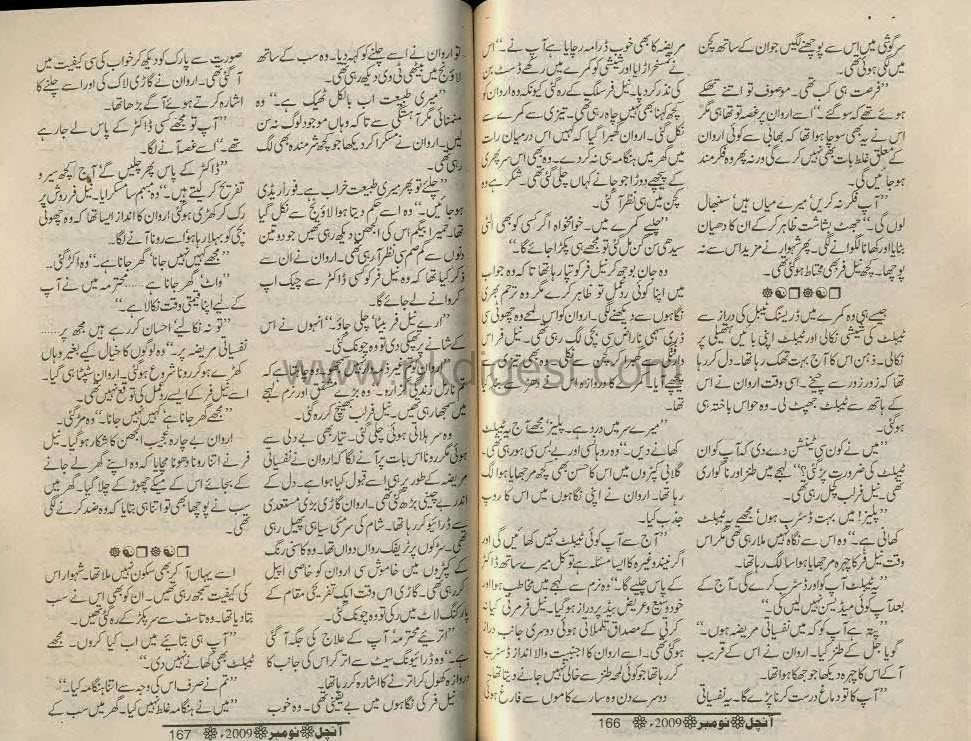 سرگوشی میں اس سے پوچھنے لگیں جو ان کے ساتھ کچن
میں لگی ہوئی تھی۔
”فرصت ہی کب تھی۔ موصوف تو اتنے تھکے
ہوئے تھے کہ سو گئے۔“ اسے اروان پر غصہ تو تھا ہی مگر
اس نے یہ بھی سوچا ہوا تھا کہ بھائی سے کوئی اروان
کے متعلق غلط بات بھی نہیں کرے گی ورنہ پھر وہ فکرمند
ہو جائیں گی۔
”آپ فکر نہ کریں میرے میاں ہیں سنبھال
لوں گی۔“ جھٹ بشاشت ظاہر کر کے ان کا دھیان
بٹایا اور کھانا لگوانے لگی۔ پھر شہوار نے مزید اس سے نہ
پوچھا۔ کچھ نیل فر بھی محتاط ہو گئی تھی۔
جیسے ہی وہ کمرے میں ڈریسنگ ٹیبل کی دراز سے
ٹیبلٹ کی شیشی نکالی اور ٹیبلٹ اپنی بائیں ہتھیلی پر
نکالی۔ ذہن اس کا آج بہت تھک رہا تھا۔ دل کر رہا
تھا کہ زور زور سے چیخے۔ اسی وقت اروان نے اس
کے ہاتھ سے ٹیبلٹ جھپٹ لی۔ وہ حواس باختہ ہی
ہو گئی۔
”میں نے کون سی ٹینشن دے دی کہ آپ کو ان
ٹیبلٹ کی ضرورت پڑ گئی؟“ لہجے میں طنز اور ناگواری
تھی۔ نیل فر لب کچل رہی تھی۔
”پلیز! میں بہت ڈسٹرب ہوں مجھے یہ ٹیبلٹ
کھانی ہے۔“ وہ اس سے نگاہ نہیں ملا رہی تھی مگر اس
وقت نیل فر کا چہرہ مرجھایا ہوا سا لگ رہا تھا۔
”یہ ٹیبلٹ آپ کو اور ڈسٹرب کرے گی۔ آج کے
بعد آپ کوئی میڈیسن نہیں لیں گی۔“
”پتہ ہے آپ کو کہ میں نفسیاتی مریضہ ہوں۔“
گویا جل کے طنز کیا۔ اروان نے اس کے قریب
آ کے اس کا چہرہ دیکھا جو جھکا ہوا تھا۔
”آپ کا تو دماغ درست کرنا پڑے گا۔ یہ نفسیاتی
مریضہ کا بھی خوب ڈرامہ رچایا ہے آپ نے۔“ اس
نے تمسخر اڑایا اور شیشی کو کمرے میں رکھے ڈسٹ بن
کی نذر کر دیا۔ نیل فر سلگ کے رہ گئی کیونکہ وہ اروان کو
کچھ کہنا بھی نہیں چاہ رہی تھی۔ تیزی سے کمرے سے
نکل گئی۔ اروان گھبرا گیا کہ کہیں اس درمیان رات
میں گھر میں ہنگامہ ہی نہ کر دے۔ وہ بھی اس سر پھری
کے پیچھے دوڑا جو جانے کہاں چلی گئی تھی۔ شکر ہے وہ
کچن میں ہی نظر آ گئی۔
”چلیے کمرے میں۔ خوامخواہ اگر کسی کو بھی الٹی
سیدھی سن گن مل گئی تو مجھے ہی پکڑا جائے گا۔“
وہ جان بوجھ کر نیل فر کو تپا رہا تھا تا کہ وہ جواب
میں اپنا کوئی ردعمل تو ظاہر کرے مگر وہ ترحم بھری
نگاہوں سے دیکھنے لگی۔ اروان کو اس لمحے وہ چھوٹی سی
ڈری سہمی ناراض سی بچی لگ رہی تھی۔ نیل فر اس
وارفتگی پر گھبرا کر کچن سے نکلی۔ وہ بھی تیزی سے
پیچھے آیا۔ کمرے کا دروازہ اندر سے بند کیا
تھا۔
”میرے سر میں درد ہے۔ پلیز مجھے آج یہ ٹیبلٹ
کھانے دیں۔“ وہ روہانسی اور بے بس ہو رہی تھی۔
گلابی کپڑوں میں اس کا حسن بھی کچھ مرجھایا ہوا لگ
رہا تھا۔ اروان نے اپنی نگاہوں میں اس کا روپ
جذب کیا۔
”آج سے آپ کوئی ٹیبلٹ نہیں کھائیں گی اور
اگر نیند وغیرہ کا ایسا مسئلہ ہے تو کل میرے ساتھ ڈاکٹر
کے پاس چلیے گا۔“ وہ نرم سے لہجے میں مخاطب ہوا اور
خود وسیع و عریض بیڈ پر دراز ہو گیا۔ نیل فر مرتی کیا نہ
کرتی کے مصداق تلملاتی ہوئی دوسری جانب دراز
ہو گئی۔ اسے اروان کا اجنبیت والا انداز ڈسٹرب
کر رہا تھا جو کوئی لمحہ طنز سے خالی نہیں جانے دیتا تھا۔
دوسرے دن وہ سارے کاموں سے فارغ ہوئی
آنچل نومبر 2009ء 166
تو اروان نے اسے چلنے کو کہہ دیا۔ وہ سب کے ساتھ
لاؤنج میں بیٹھی ٹی وی دیکھ رہی تھی۔
”میری طبیعت اب بالکل ٹھیک ہے۔“ وہ
منمنائی مگر آہستگی سے تا کہ وہاں موجود لوگ نہ سن
لیں۔ اروان نے مسکرا کر دیکھا جو کچھ شرمندہ بھی لگ
رہی تھی۔
”چلیے تو پھر میری طبیعت خراب ہے۔ فوراً ریڈی
ہو جائیں۔“ وہ اسے حکم دیتا ہوا لاؤنج سے نکل گیا
تھا۔ حمیرا بیگم اس کی الجھن دیکھ رہی تھیں جو دو تین
دنوں سے گم صم سی نظر آ رہی تھی۔ اروان نے ان سے
ذکر کیا تھا کہ وہ نیل فر کو کسی ڈاکٹر سے چیک اپ
کروانے لے جائے گا۔
”ارے نیل فر بیٹا چلی جاؤ۔“ انہوں نے اس
کے شانے پر تھپکی دی تو وہ چونک گئی۔
”اروان گو تیز ضرور ہے مگر وہ جانتا ہے کہ
تم نازل زندگی گزارو۔ وہ بڑے مشفق اور نرم لہجے
میں سمجھا رہی تھیں۔ نیل فر لب بھینچ کر رہ گئی۔
وہ سر ہلاتی ہوئی چلی گئی۔ تیار بھی بے دلی سے
ہوئی مگر رونا اس بات پر آنے لگا کہ اروان نے نفسیاتی
مریضہ کے طور پر ہی اسے قبول کیا ہوا ہے۔ دل کے
اندر بے چینی بڑھ گئی تھی۔ اروان گاڑی بڑی مستعدی
سے ڈرائیو کر رہا تھا۔ شام کی سرمئی سیاہی پھیل رہی
تھی۔ سڑکوں پر ٹریفک رواں دواں تھا۔ وہ کاسنی رنگ
کے کپڑوں میں خاموش سی اروان کو خاصی اپیل
کر رہی تھی۔ گاڑی اس وقت ایک تفریحی مقام کے
پارکنگ لاٹ میں رکی تو وہ چونک گئی۔
”اتریئے محترمہ! آپ کے علاج کی جگہ آ گئی
ہے۔“ وہ ڈرائیونگ سیٹ سے اتر کر اس کی جانب کا
دروازہ کھول کر اترنے کا اشارہ کر رہا تھا۔
نیل فر کی نگاہوں میں بے یقینی تھی۔ وہ خوب
صورت سے پارک کو دیکھ کر خواب کی سی کیفیت میں
آ گئی تھی۔ اروان نے گاڑی لاک کی اور اسے چلنے کا
اشارہ کرتے ہوئے آگے بڑھا تھا۔
”آپ تو مجھے کسی ڈاکٹر کے پاس لے جا رہے
تھے۔“ اسے غصہ آنے لگا۔
”ڈاکٹر کے پاس پھر چلیں گے آج کچھ سیر و
تفریح کر لیتے ہیں۔“ وہ مبہم سا مسکرایا۔ نیل فر روش پر
رک کر کھڑی ہو گئی اروان کا انداز ایسا تھا کہ وہ چھوٹی
بچی کو بہلا رہا ہو اسے رونا آنے لگا۔
”مجھے نہیں جانا گھر جانا ہے۔“ وہ اکڑ گئی۔
”واٹ گھر جانا ہے ...... محترمہ میں نے آپ
کے لیے اپنا قیمتی وقت نکالا ہے۔“
”تو نہ نکالتے احسان کر رہے ہیں مجھ پر ......
نفسیاتی مریضہ پر۔“ وہ لوگوں کا خیال کیے بغیر وہاں
کھڑے ہو کر رونا شروع ہو گئی۔ اروان سٹپٹا ہی گیا
اسے نیل فر کے ایسے ردعمل کی توقع نہیں تھی۔
”مجھے گھر جانا ہے کہیں نہیں جانا۔“ وہ مڑ گئی۔
اروان بے چارہ عجیب الجھن کا شکار ہو گیا۔ نیل
فر نے اتنا رونا دھونا مچایا کہ وہ اپنے گھر لے جانے
کے بجائے اس کے میکے چھوڑ کے چلا گیا۔ گھر میں
سب نے پوچھا بھی تو اتنا ہی بتایا کہ وہ ضد کرنے لگی
تھی۔
اسے یہاں آ کر بھی سکون نہیں ملا تھا۔ شہوار اس
کی کیفیت سمجھ رہی تھیں۔ ان کو بھی اس نے سب
بتا دیا تھا۔ وہ تاسف سے سر پکڑ کے رہ گئی تھیں۔
”آپ ہی بتائیے میں اب کیا کروں۔ مجھے
ٹیبلٹ بھی کھانے نہیں دی۔“
”تم نے صرف اس کی وجہ سے اتنا ہنگامہ کیا۔“
”میں نے ہنگامہ غلط نہیں کیا۔ گھر میں سب کے
آنچل نومبر 2009ء 167
www.pkdigest.com